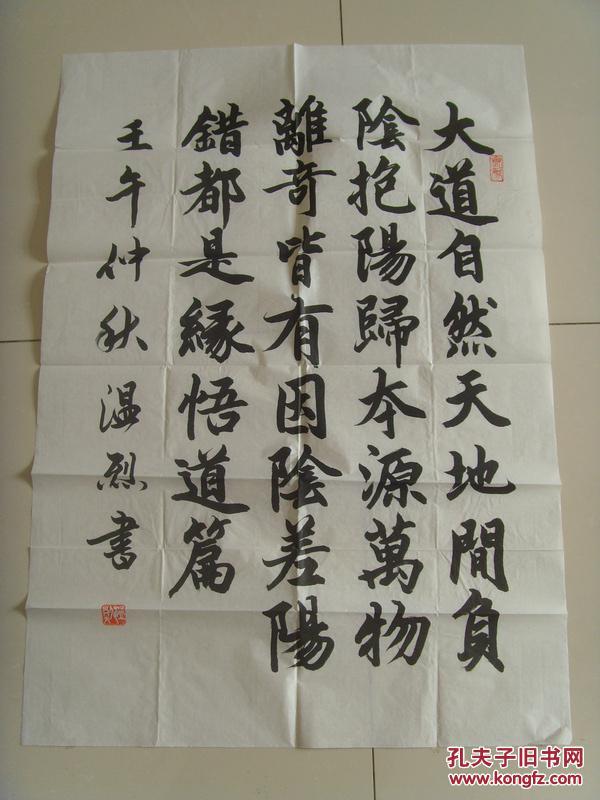 大道自然天地間負
陰抱陽歸本源萬物
離奇皆有因陰差陽
錯都是緣悟道篇
壬午仲秋溫烈書
孔夫子旧书网
www.kongfz.com